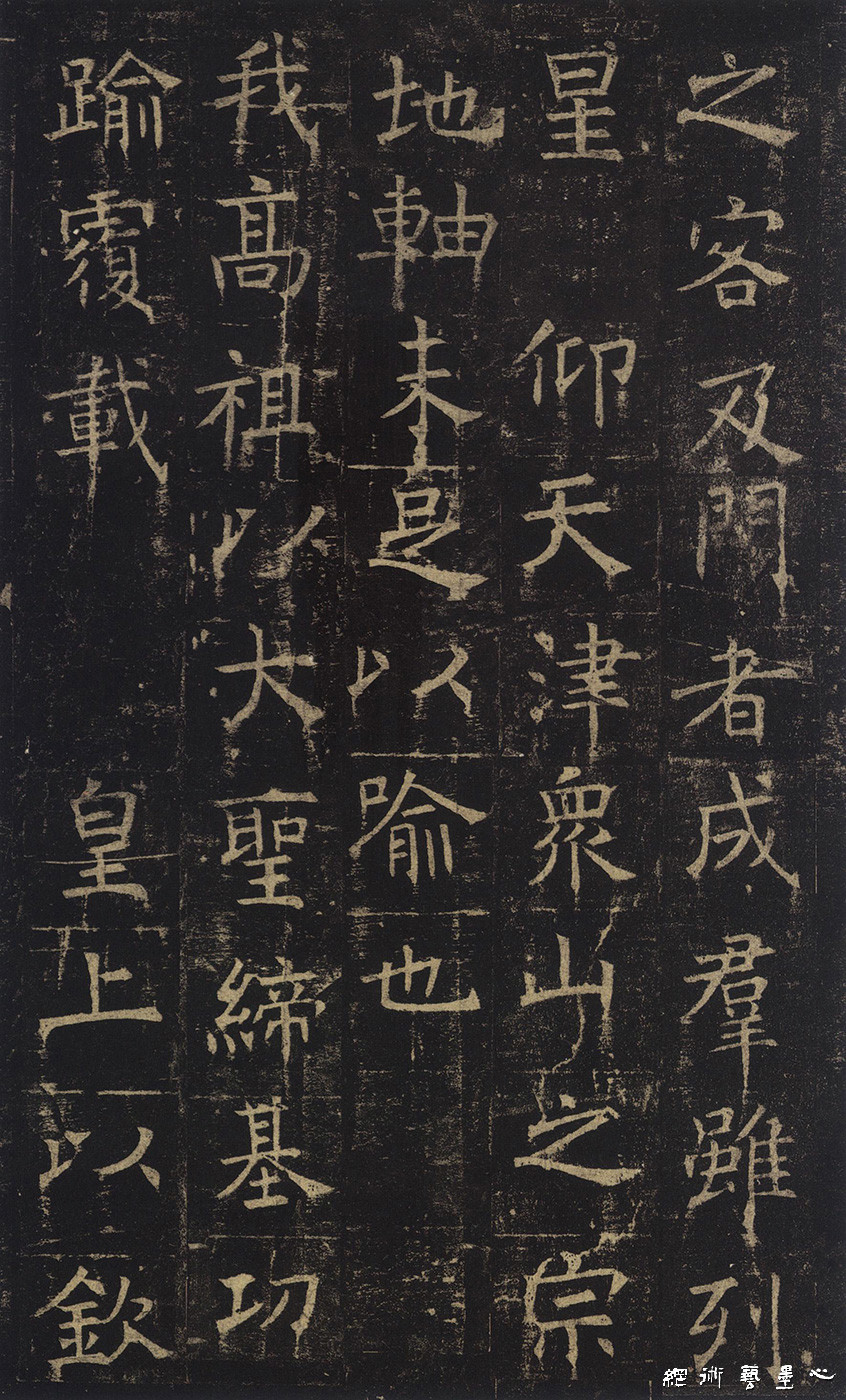 之客及門者成羣雖列
星仰天津衆山之宗
地軸未足以喻也
我髙祖以大聖締基功
踰覆載皇上以欽
心墨藝術網